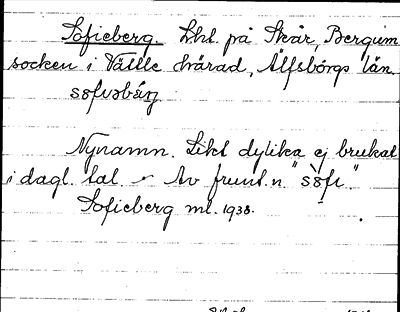 Sofieberg. Lht. på Skår, Bergum
socken i Vättle härad, Älfsborgs län.
sofiəbærj
Nynamn. Likt dylika ej brukat
i dagl. tal. - Av frunt.n. "sòfi".
Sofieberg ml. 1938.